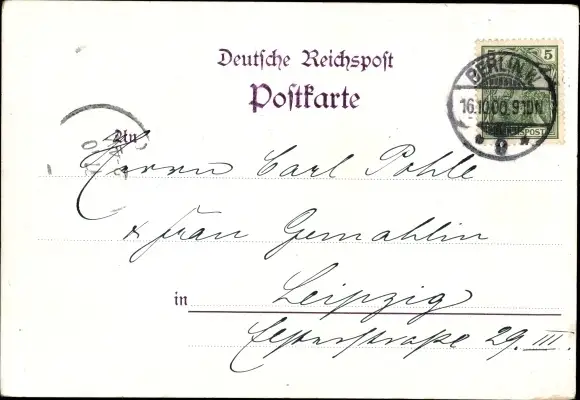 Deutsche Reichspost
Postkarte
5
BERLIN.W.
16.10.00.9-10N
REICHSPOST
* 9 *
An
Herrn Carl Pohle
& Frau Gemahlin
in Leipzig
Elsterstraße 29. III.